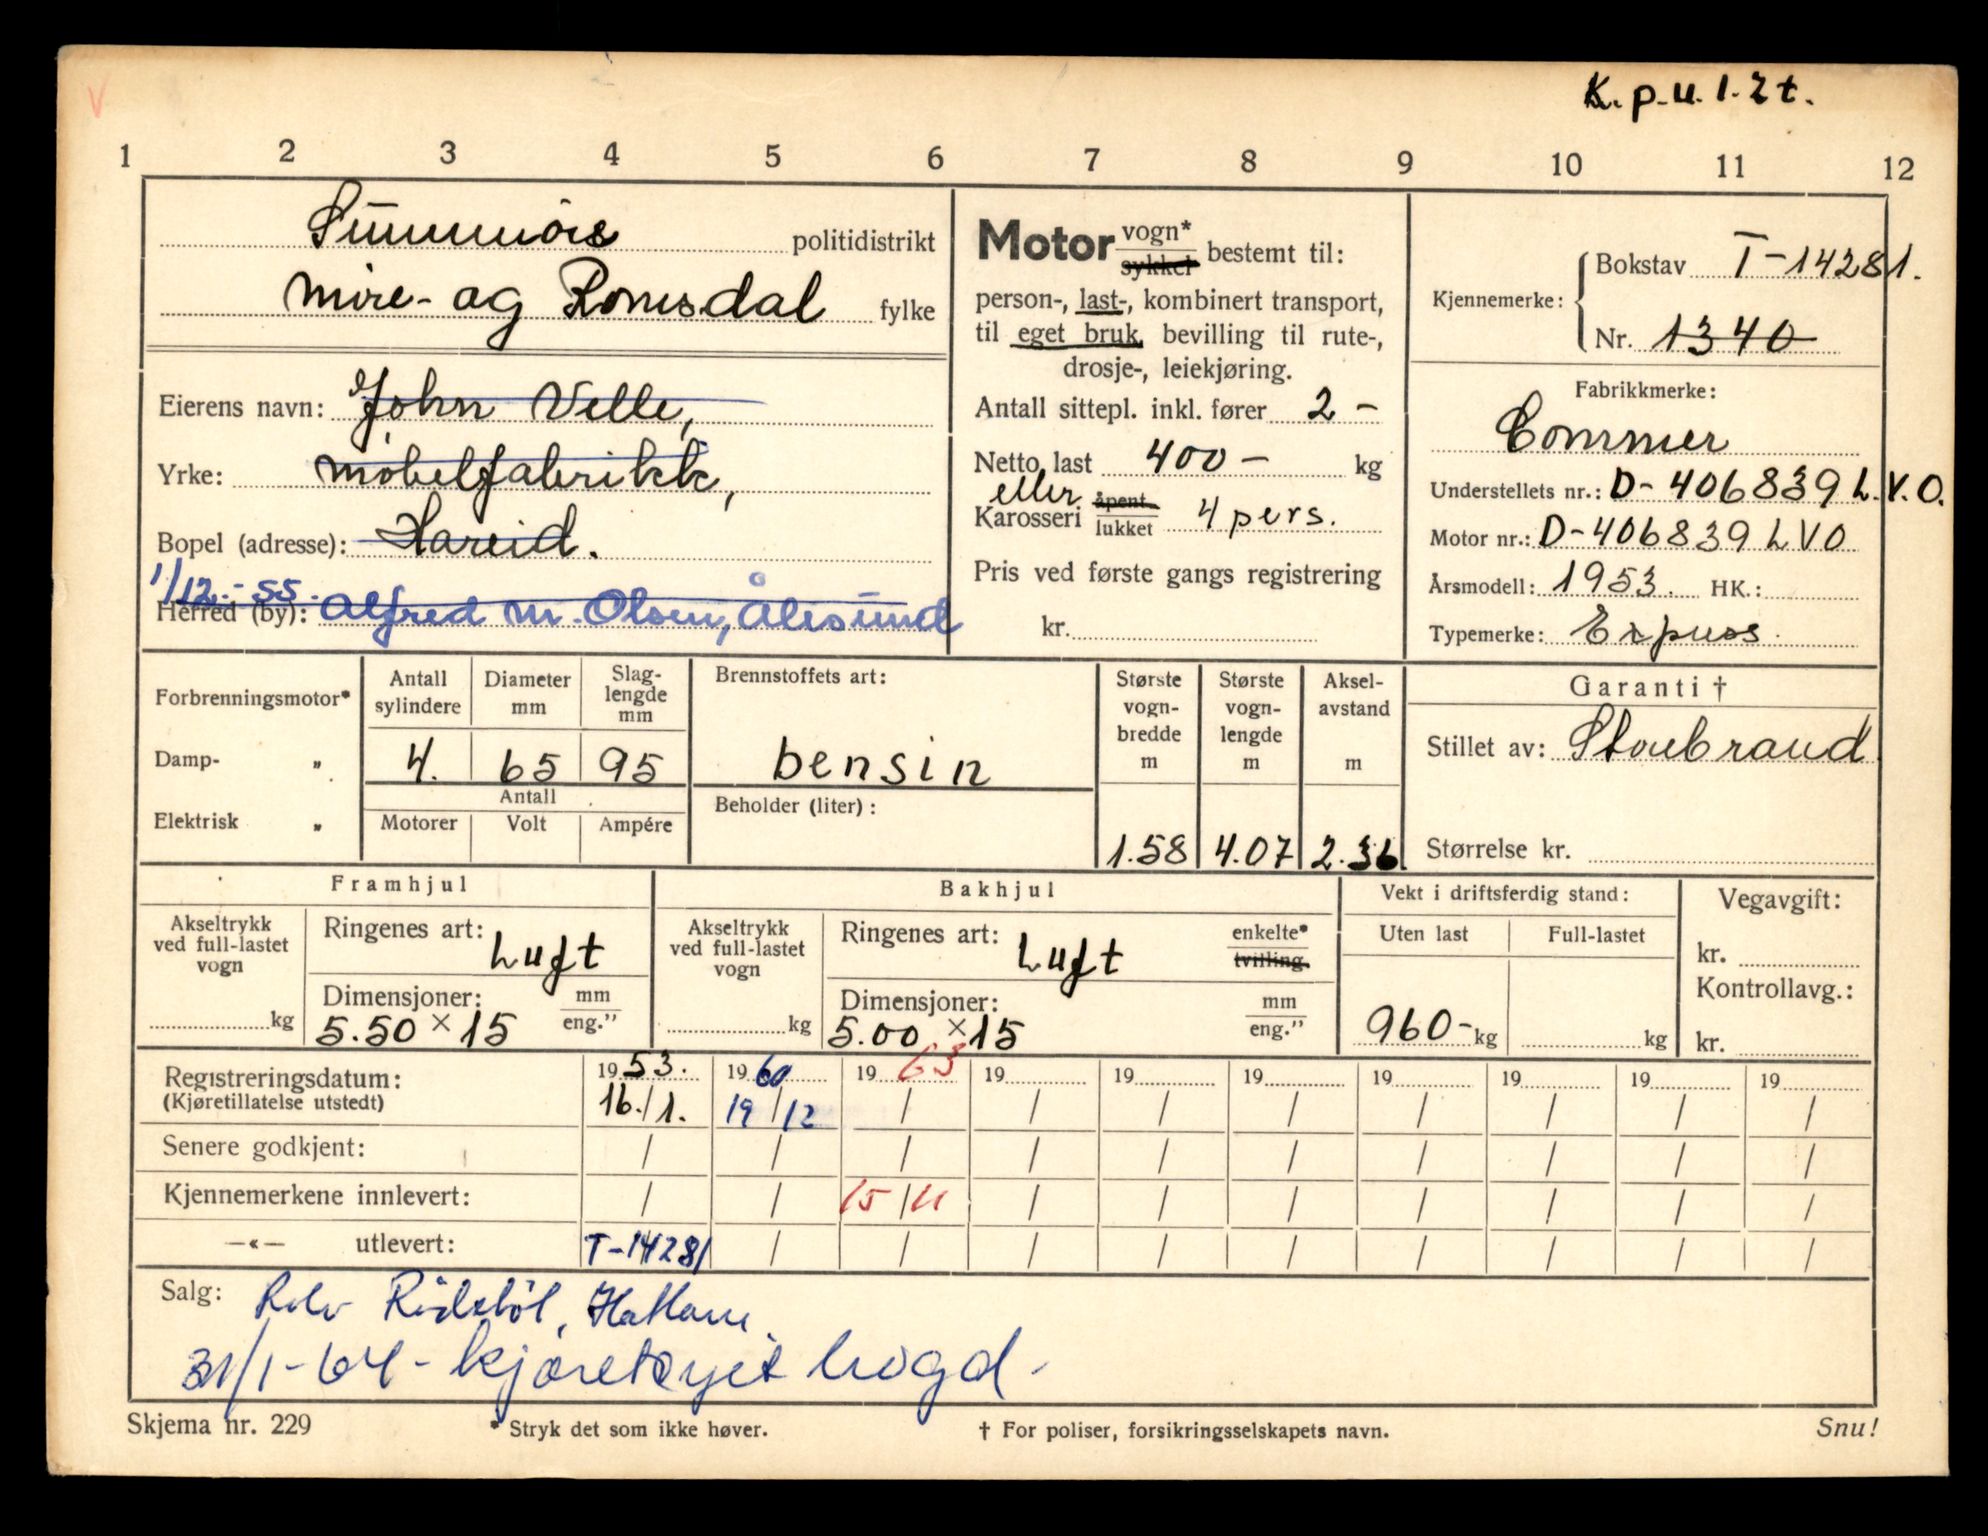 V
K. p. u. 1. 2 t.
1 2 3 4 5 6 7 8 9 10 11 12
Sunnmöre politidistrikt
Möre- og Romsdal fylke
Eierens navn: John Velle,
Yrke: Møbelfabrikk,
Bopel (adresse): Hareid.
1/12.-55.
Herred (by): Alfred M. Olsen, Ålesund
Motor vogn* sykkel bestemt til:
person-, last-, kombinert transport,
til eget bruk, bevilling til rute-,
drosje-, leiekjøring.
Antall sittepl. inkl. fører 2 -
Netto last 400 - kg
eller
Karosseri åpent lukket 4 pers.
Pris ved første gangs registrering
kr.
Kjennemerke: Bokstav T-14281.
Nr. 1340
Fabrikkmerke:
Commer
Understellets nr.: D-406839 L.V.O.
Motor nr.: D-406839 LVO
Årsmodell: 1953. HK.:
Typemerke: Express.
Forbrenningsmotor*
Damp- "
Elektrisk "
Antall sylindere Diameter mm Slaglengde mm
4. 65 95
Antall
Motorer Volt Ampére
Brennstoffets art:
bensin
Beholder (liter):
Største vognbredde m
1.58
Største vognlengde m
4.07
Akselavstand m
2.36
Garanti †
Stillet av: Storebrand
Størrelse kr.
Framhjul
Akseltrykk ved full-lastet vogn
kg
Ringenes art: Luft
Dimensjoner: mm
5.50 × 15 eng."
Bakhjul
Akseltrykk ved full-lastet vogn
kg
Ringenes art: Luft enkelte* tvilling.
Dimensjoner: mm
5.00 × 15 eng."
Vekt i driftsferdig stand:
Uten last Full-lastet
960- kg kg
Vegavgift:
kr.
Kontrollavg.:
kr.
Registreringsdatum: 1953. 1960 1963 19 19 19 19 19 19 19
(Kjøretillatelse utstedt) 16./1. 19/12 / / / / / / / /
Senere godkjent: / / / / / / / / / /
Kjennemerkene innlevert: / / 15/11 / / / / / / /
—«— utlevert: T-14281 / / / / / / / / /
Salg: Rolv
31/1-64- kjøretøyet hogd -
Skjema nr. 229
* Stryk det som ikke høver.
† For poliser, forsikringsselskapets navn.
Snu!